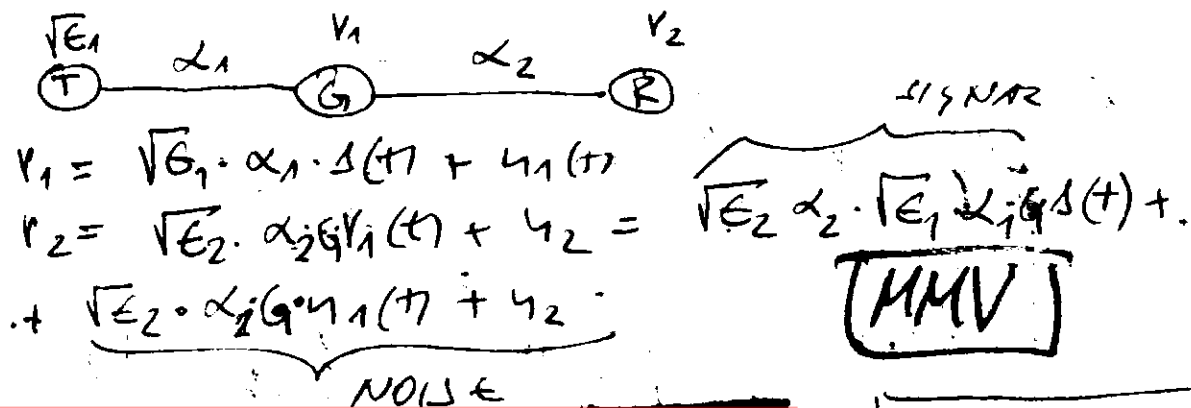 √E1 α1 r1 α2 r2
T G R
r1 = √E1 · α1 · s(t) + n1(t)
SIGNAL
r2 = √E2 · α2 · G r1(t) + n2 = √E2 α2 · √E1 α1 G s(t) + .
.+ √E2 · α2 · G · n1(t) + n2
NOISE
MMV